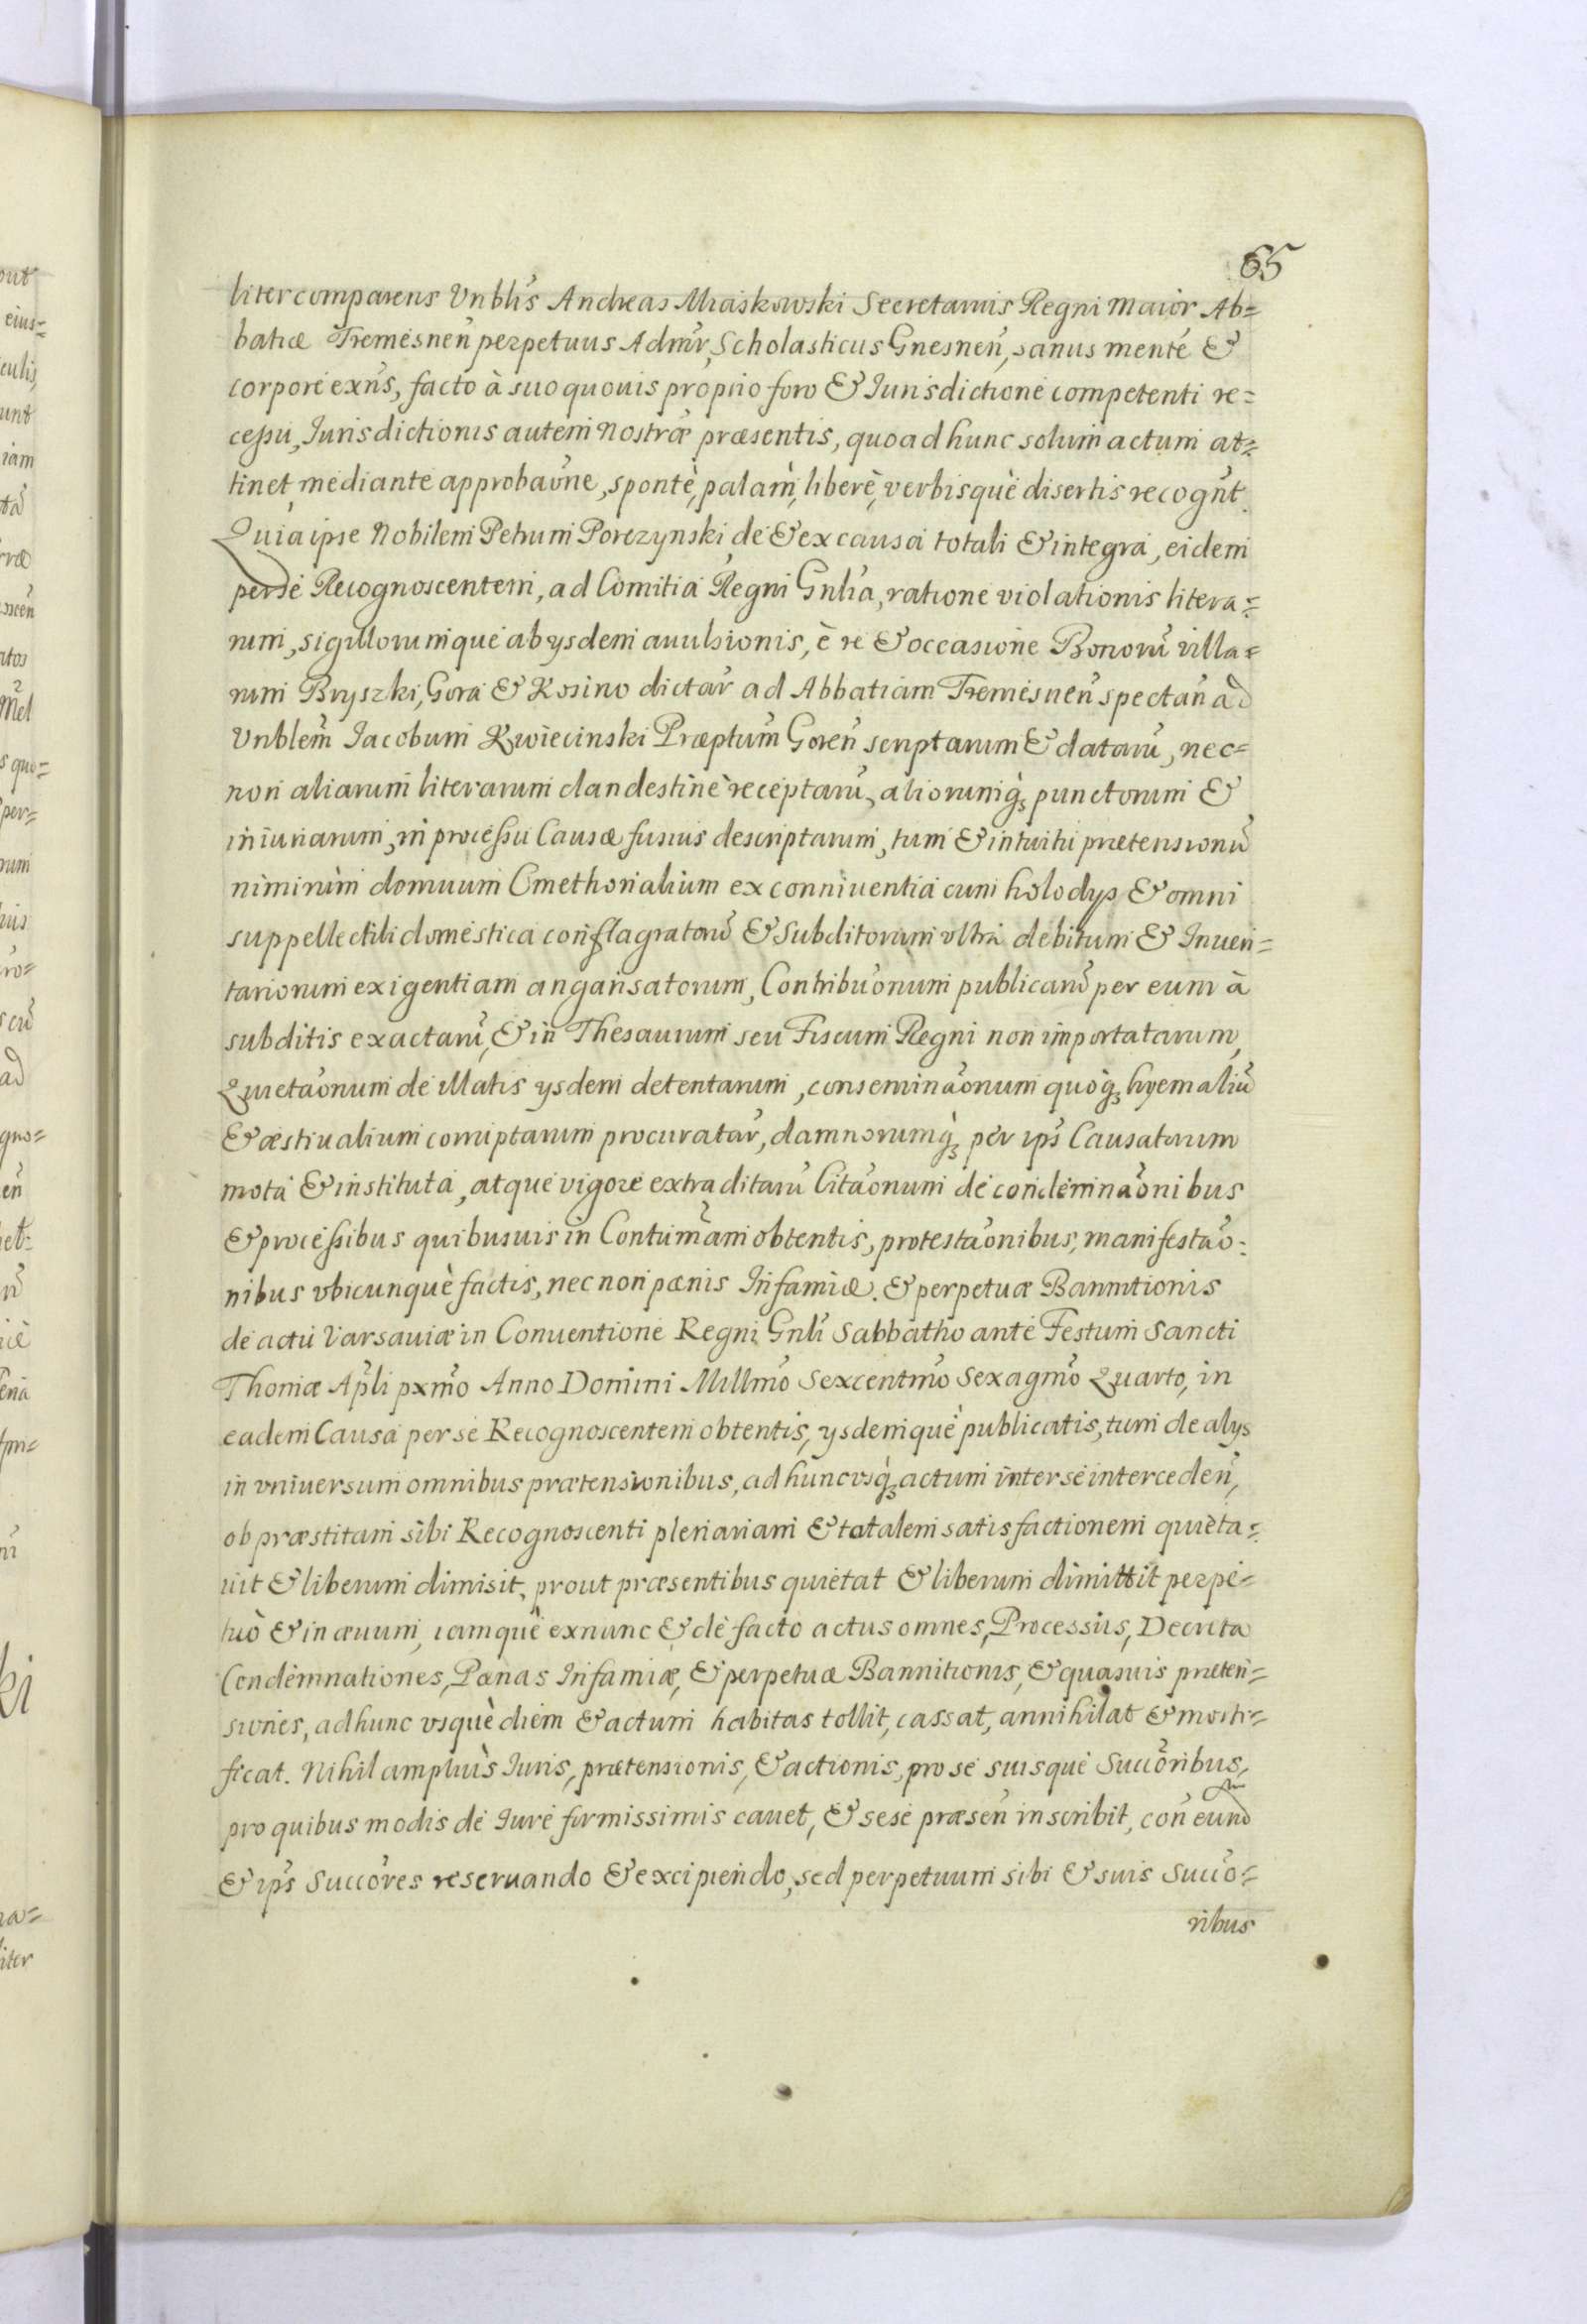 65
liter comparens Vnblis Andreas Miaskowski Secretarius Regni Maior Ab=
batiæ Tremesnen̄ perpetuus Admr̄, Scholasticus Gnesnen̄, sanus mente &
corpore exn̄s, facto à suo quouis proprio foro & Iurisdictione competenti re=
cessu, Iurisdictionis autem nostræ præsentis, quoad hunc solum actum at=
tinet mediante approbaōne, spontè, palàm, liberè, verbisquè disertis recogn̄t.
Quia ipse Nobilem Petrum Porczynski de & ex causa totali & integra, eidem
per se Recognoscentem, ad Comitia Regni Gnl̄ia, ratione violationis litera=
rum, sigillorumque ab ysdem auulsionis, è re & occasione Bonorū villa=
rum Bryszki, Gora & Kosino dictar̄ ad Abbatiam Tremesnen̄ spectan̄ ad
Vnblem̄ Iacobum Kwiecinski Præptum̄ Goren̄ scriptarum & datarū, nec=
non aliarum literarum clandestinè receptarū, aliorumq́; punctorum &
iniuriarum, in processu Causæ fusius descriptarum, tum & intuitu prætensionū
nimirùm domuum Cmethonalium ex conniuentia cum holodys & omni
suppellectili domestica conflagratorū & Subditorum vltra debitum & Inuen=
tariorum exigentiam angarisatorum, Contribuōnum publicarū per eum à
subditis exactarū, & in Thesaurum seu Fiscum Regni non importatarum,
Quietaōnum de illatis ysdem detentarum, conseminaōnum quoq́; hyemaliū
& æstiualium corruptarum procuratar̄, damnorumq́; per ips̄ Causatorum
mota & instituta, atque vigore extraditarū Citaōnum de condemnaōnibus
& processibus quibusuis in Contumām obtentis, protestaōnibus, manifestaō=
nibus vbicunquè factis, nec non pænis Infamiæ. & perpetuæ Bannitionis
de actu Varsauiæ in Conuentione Regni Gnl̄i Sabbatho ante Festum Sancti
Thomæ Apl̄i pxm̄o Anno Domini Millmō Sexcentmō Sexagmō Quarto, in
eadem Causa per se Recognoscentem obtentis, ysdemquè publicatis, tum de alys
in vniuersum omnibus prætensionibus, ad hunc vsq́; actum inter se interceden̄,
ob præstitam sibi Recognoscenti plenariam & totalem satisfactionem quieta=
uit & liberum dimisit, prout præsentibus quietat & liberum dimittit perpe=
tuò & in æuum, iamquè exnunc & de facto actus omnes, Processus, Decreta
Condemnationes, Pænas Infamiæ, & perpetuæ Bannitionis, & quasuis præten=
siones, ad hunc vsquè diem & actum habitas tollit, cassat, annihilat & morti=
ficat. Nihil ampliùs Iuris, prætensionis, & actionis, pro se suisque Succōribus,
pro quibus modis de Iure firmissimis cauet, & sese præsen̄ inscribit, con̄ eund
& ips̄ Succōres reseruando & excipiendo, sed perpetuum sibi & suis Succō=
ribus